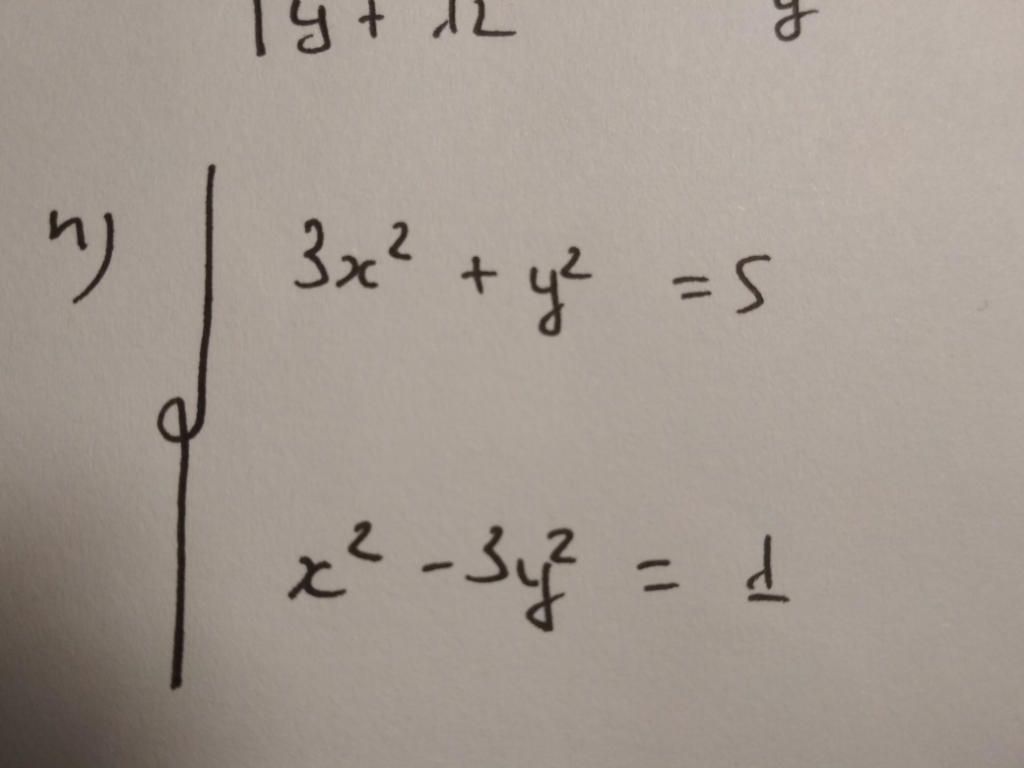 y + 12 y
n) 3x² + y² = 5
x² - 3y² = 1